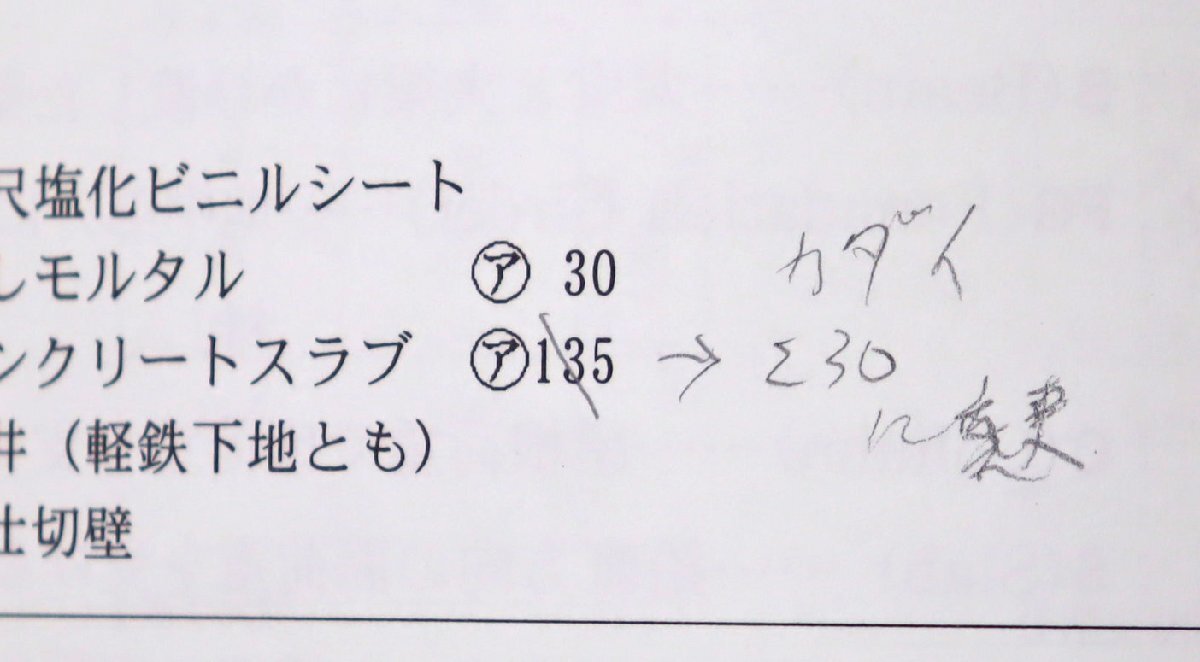 尺塩化ビニルシート
しモルタル ㋐ 30 カダイ
ンクリートスラブ ㋐135 → Σ30
井（軽鉄下地とも） に変更
仕切壁